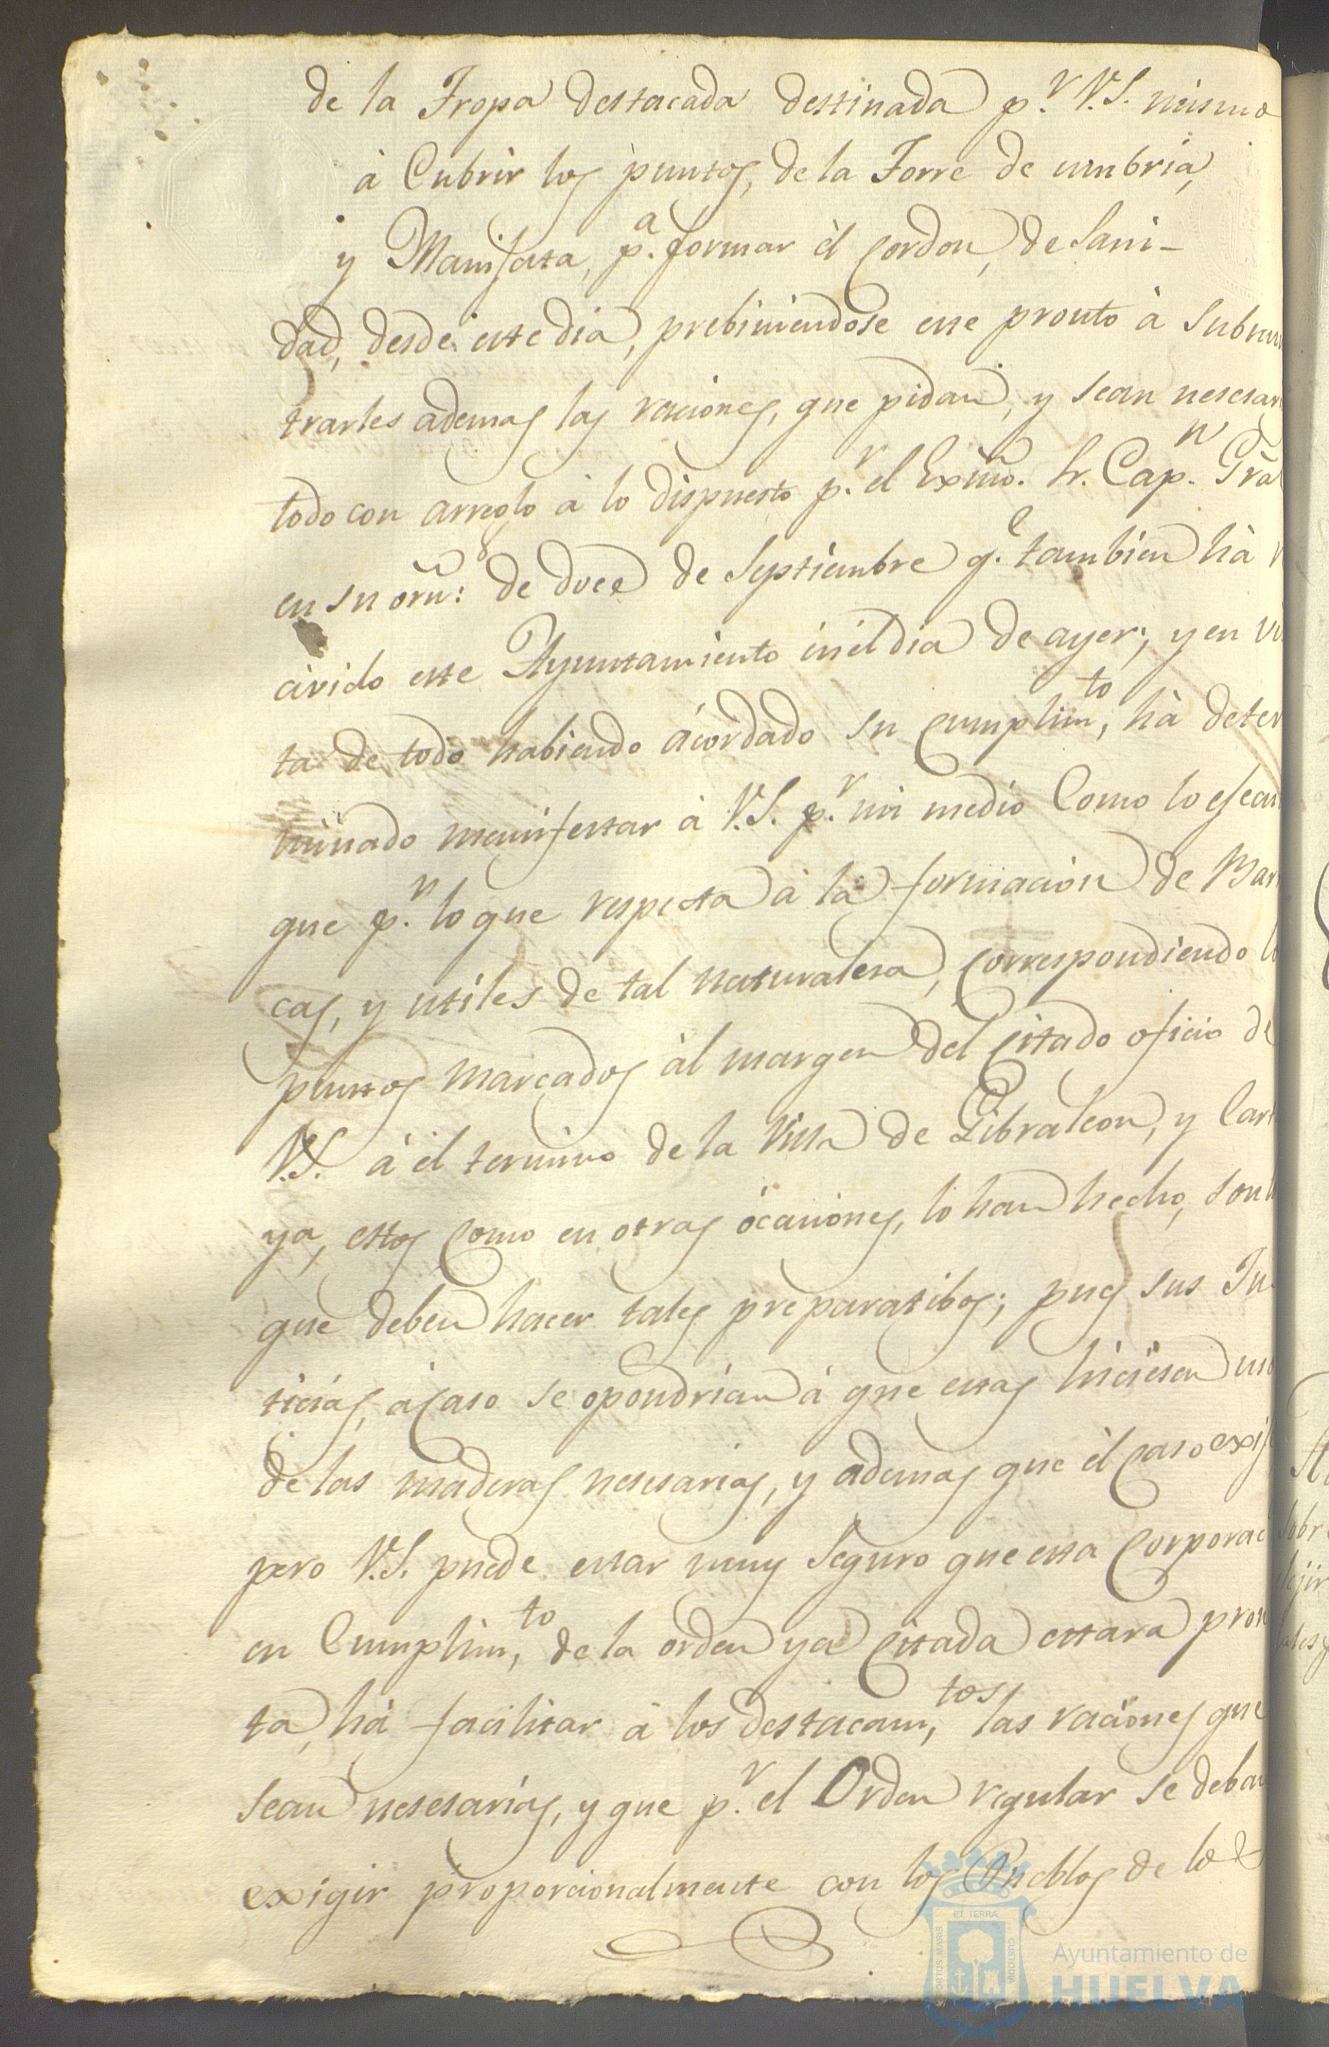 de la Tropa destacada destinada p.r V.S. mismo
à Cubrir los puntos, de la Torre de umbria,
y Manifata, p.a formar èl Cordon, de Sani-
dad, desde este dia, prebiniendose ese pronto à Submi
trarles ademas las raciones, que pidan, y sean nesesar
todo con arreglo à lo dispuesto p.r el Exmô. Sr. Cap.n Grâl
en su orn: de doce de Septiembre q.e tambien hà r
civido este Ayuntamiento en el dia de ayer; y en vi
ta de todo habiendo ácordado su Cumplim.to, hà deter
minado manifestar à V.S. p.r mi medio Como lo efecan
que p.r lo que respecta à la formacion de Bar
cas, y utiles de tal naturalesa, Correspondiendo lo
puntos marcados àl margen del Citado oficio de
V.S. à èl termino de la Villa de Gibraleon, y Cart
ya, estos Como en otras òcasiones, lo han hecho, son l
que deben hacer tales preparatibos; pues sus Ju
ticias, àcaso se opondrian à que estas hiciesen uso
de las maderas nesesarias, y ademas que èl Caso exij
pero V.S. puede estar muy Seguro que esta Corporaci
en Cumplim.to de la orden ya Citada estara pron
ta, hà facilitar à los destacam.tos las raciones que
sean nesesarias, y que p.r el Orden regular se deban
exigir proporcionalmente con los Pueblos de lo
PORTUS MARIS
ET TERRÆ
CUSTODIA
Ayuntamiento de
HUELVA